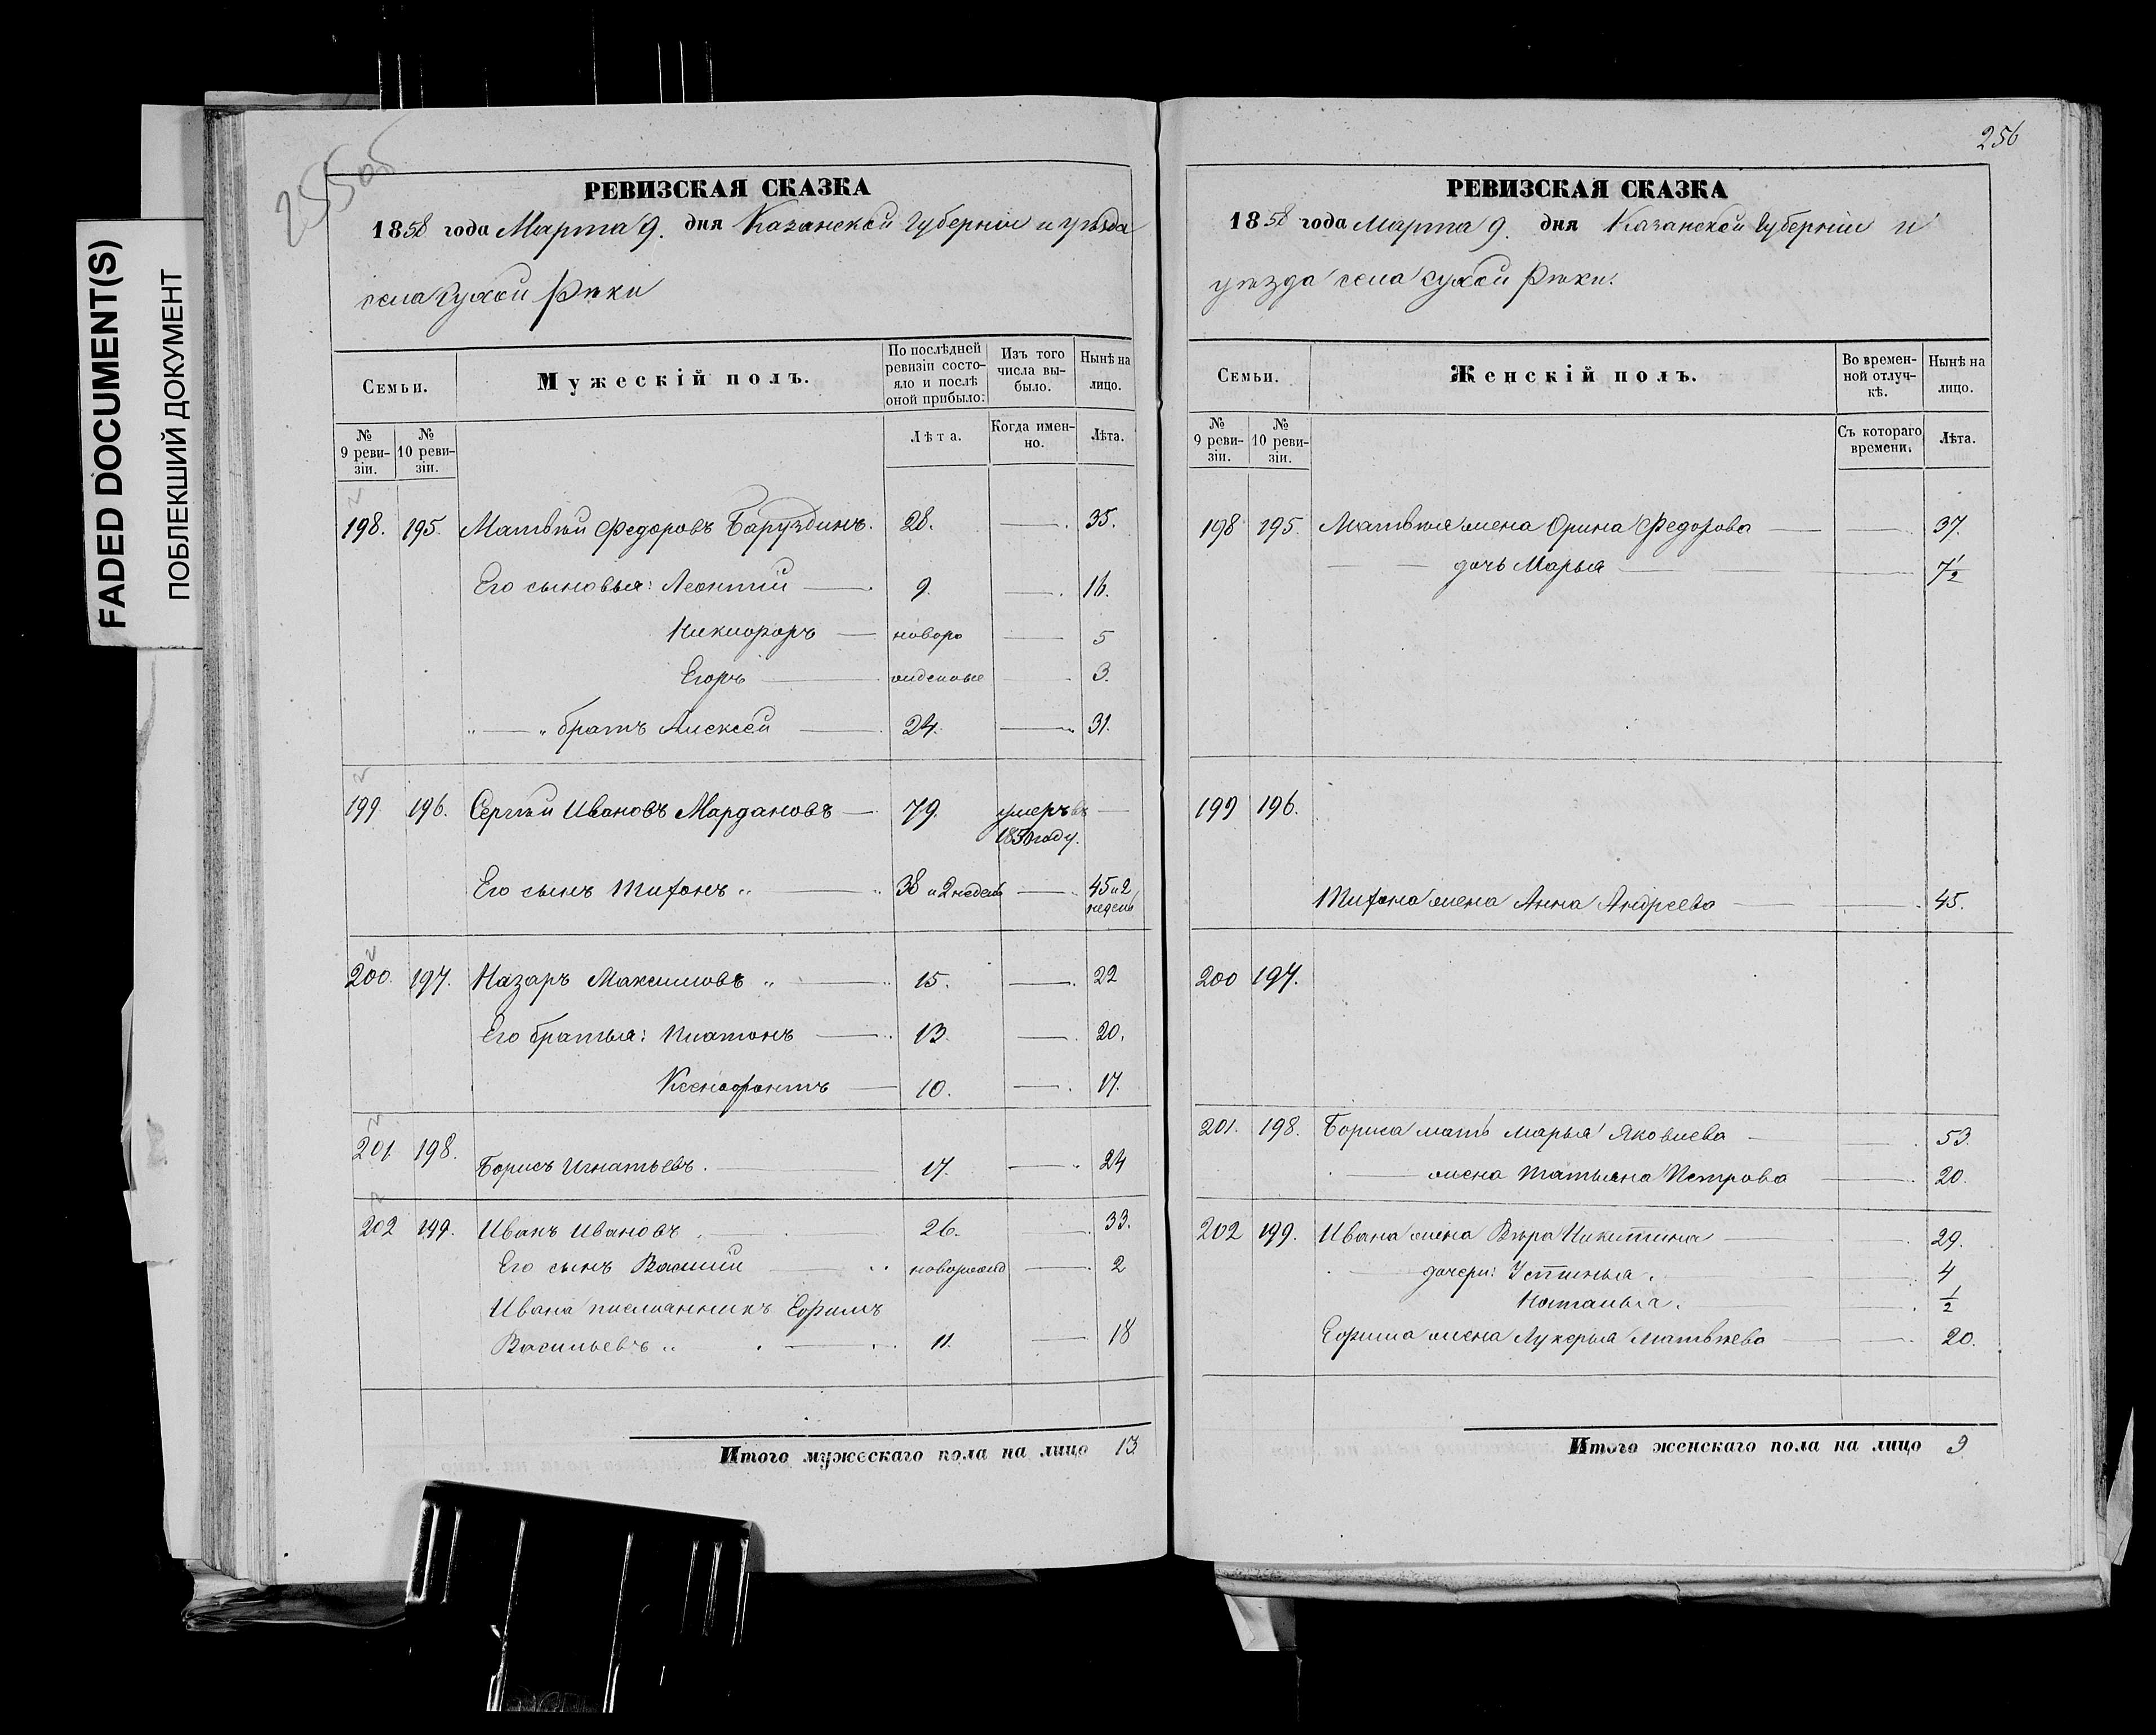 FADED DOCUMENT(S)
ПОБЛЕКШИЙ ДОКУМЕНТ
255об
РЕВИЗСКАЯ СКАЗКА
1858 года Марта 9. дня Казанской Губерніи и уѣзда
села Сухой Рѣки
Семьи.
Мужескій полъ.
По послѣдней ревизіи состояло и послѣ оной прибыло:
Изъ того числа выбыло.
Нынѣ на лицо.
№ 9 ревизіи.
№ 10 ревизіи.
Лѣта.
Когда именно.
Лѣта.
198. 195. Матвѣй Федоровъ Баруздинъ. 28. — 35.
Его сыновья: Леонтій — 9. — 16.
Никифоръ — новоро — 5
Егоръ — жденные — 3.
„ — „ братъ Алексѣй — 24. — 31.
199. 196. Сергѣй Ивановъ Мардановъ — 79. умеръ въ —
1850 году.
Его сынъ Тифонъ „ — 38 и 2 недель — 45 и 2
недель
200. 197. Назаръ Максимовъ „ — 15. — 22
Его братья: Платонъ — 13. — 20.
Ксенофонтъ — 10. — 17.
201 198. Борисъ Игнатьевъ. — 17. — 24
202 199. Иванъ Ивановъ. — 26. — 33.
Его сынъ Василій — новорожд — 2
Ивана племянникъ Ефимъ
Васильевъ „ — 11. — 18
Итого мужескаго пола на лицо 13
256
РЕВИЗСКАЯ СКАЗКА
1858 года Марта 9. дня Казанской Губерніи и
уѣзда села Сухой Рѣки.
Семьи.
Женскій полъ.
Во временной отлучкѣ.
Нынѣ на лицо.
№ 9 ревизіи.
№ 10 ревизіи.
Съ котораго времени.
Лѣта.
198 195. Матвѣя жена Орина Федорова — — 37.
— — дочь Марья — — 7½
199 196.
Тифона жена Анна Андреева — — 45.
200 197.
201. 198. Бориса мать Марья Яковлева — — 53.
— жена Татьяна Петрова — 20.
202 199. Ивана жена Вѣра Никитина — — 29.
— дочери: Устинья. — 4
Наталья. — ½
Ефима жена Лукерья Матвѣева — — 20.
Итого женскаго пола на лицо 9